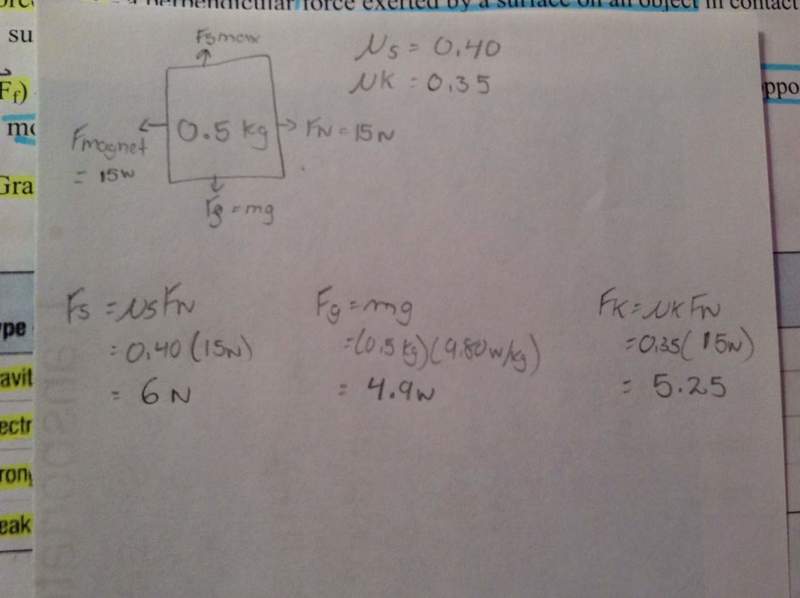 perpendicular force exerted by a surface on an object in contact
su
Ff)
oppo
mo
Gra
ype
avit
ectr
rong
eak
Fsmax
μs = 0.40
μK = 0.35
0.5 kg
FN = 15N
Fmagnet
= 15N
Fg = mg
Fs = μsFN
= 0.40 (15N)
= 6 N
Fg = mg
= (0.5 kg)(9.80N/kg)
= 4.9N
FK = μKFN
= 0.35(15N)
= 5.25